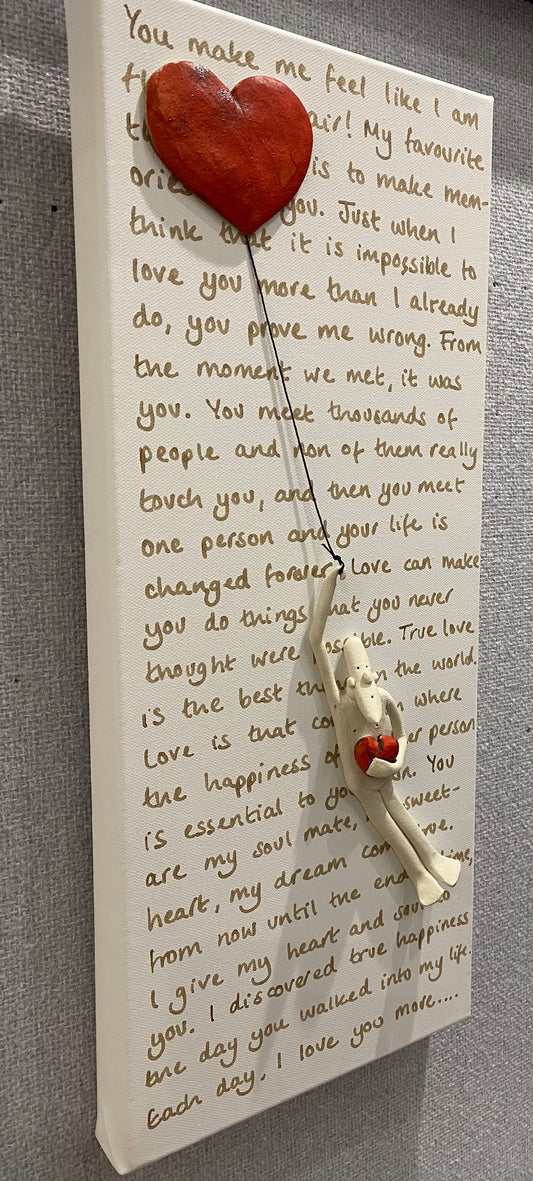 You make me feel like I am
air! My favourite
is to make mem-
you. Just when I
think that it is impossible to
love you more than I already
do, you prove me wrong. From
the moment we met, it was
you. You meet thousands of
people and non of them really
touch you, and then you meet
one person and your life is
changed forever. Love can make
you do things that you never
thought were possible. True love
is the best in the world.
Love is that where
the happiness of person
is essential to You
are my soul mate, sweet-
heart, my dream
from now until the end
I give my heart and soul to
you. I discovered true happiness
the day you walked into my life.
Each day. I love you more....